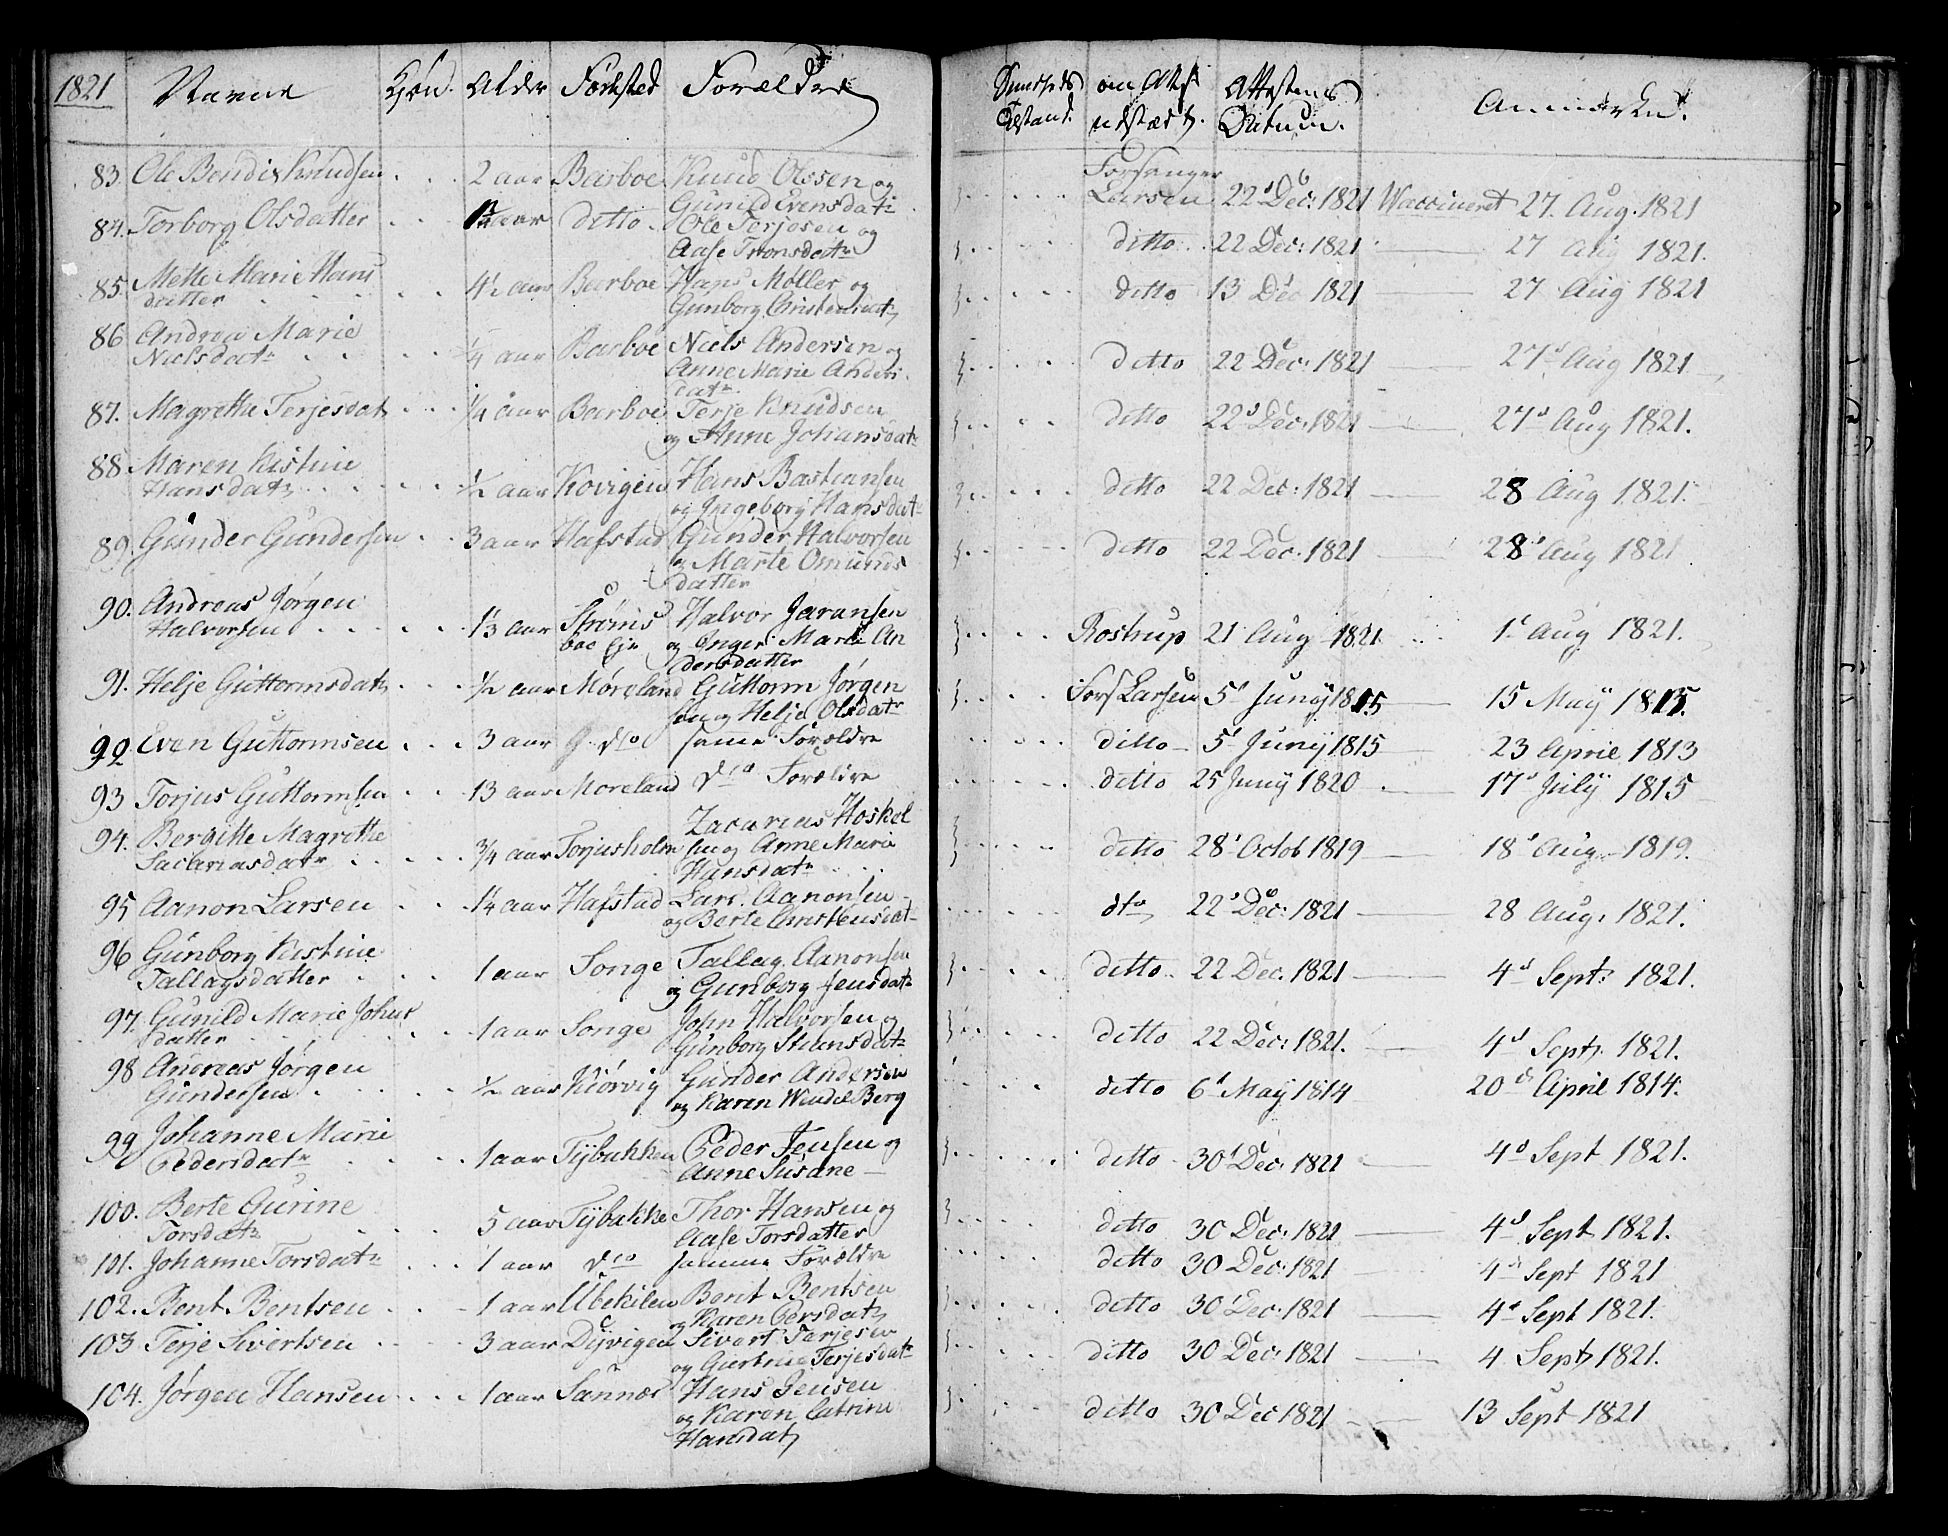 1821 Navne Kjøn. Alder Fødested Forældre
83. Ole Bendix Knudsen 2 aar Barboe Knud Olssen og
Gunild Evensdatr
84. Torborg Olsdatter aar ditto Ole Terjesen og
Aase Tronsdatr
85. Mette Marie Hans 4½ aar Barboe Hans Møller og
datter Gunborg Christensdatr
86 Andrea Marie Barboe Niels Andersen og
Nielsdatr ¼ aar Anne Marie Anders
datr
87. Magrethe Terjesdatr ¼ aar Barboe Terje Knudsen
og Anne Johansdatr
88 Maren Kistine Kovigen Hans Bastiansen
Hansdatr ½ aar og Ingeborg Hansdatr
89. Gunder Gundersen 3 aar Hafstad Gunder Halvorsen
og Marte Omunds
datter
90. Andreas Jørgen Strøms Halvor Jaransen
Halvorsen 1/3 aar boe Eje og Inger Marie An
dersdatter
91. Helje Guttormsdatr ½ aar Møreland Guttorm Jørgen
sen og Helje Olsdatr
92. Even Guttormsen 3 aar dto same Forældre
93 Torjus Guttormsen 13 aar Moreland dto Forældre
94. Bergitte Magrethe Zacarias Hoskel
Sacariasdatr ¾ aar Torjusholm sen og Anne Marie
Hansdatr
95 Aanon Larsen ¼ aar Hafstad Lars Aanonsen
og Berte Christensdat
96 Gunborg Kistine 1 aar Songe Tallag Aanonsen
Tallagsdatter og Gunborg Jensdatr
97. Gunild Marie Johns 1 aar Songe John Halvorsen og
datter Gunborg Stiansdatr
98 Andreas Jørgen Kiørvig Gunder Andersen
Gundersen ½ aar og Karen Wendel Berg
99 Johanne Marie 1 aar Tybakken Peder Jensen og
Pedersdatr Anne Susane
100. Berte Gurine 5 aar Tybakke Thor Hansen og
Torsdatr Aase Torsdatter
101. Johanne Torsdatr 1 aar dto samme Forældre
102. Bent Bentsen 1 aar Ubekilen Bent Bentsen
og Karen Persdatr
103 Terje Sivertsen 3 aar Dyvigen Sivert Terjesen
og Gurtrue Terjesdatr
104. Jørgen Hansen 1 aar Sannæs Hans Jensen
og Karen Catrine
Hansdatr
Sundheds om Attest Attestens Anmærkn.
Tilstand. udstædt. Datum.
Forsanger
Larsen 22d Dec: 1821 Waccineret 27. Aug. 1821
ditto 22 Dec: 1821 27 Aug 1821.
ditto 13 Dec 1821 27 Aug 1821
ditto 22 Dec: 1821 27d Aug 1821
ditto 22d Dec: 1821 27d Aug 1821.
ditto 22 Dec: 1821 28 Aug 1821.
ditto 22 Dec. 1821 28d Aug 1821
Rostrup 21 Aug 1821 1t Aug 1821.
Fors Larsen 5d Junÿ 1815 15 Maÿ 1815.
ditto 5d Junÿ 1815 23 April 1813
ditto 25 Junÿ 1820 17d Julÿ 1815
ditto 28d Octob 1819 18d Aug 1819.
dto 22d Dec: 1821 28 Aug. 1821.
ditto 22 Dec. 1821 4d Sept: 1821.
ditto 22 Dec: 1821. 4d Sept. 1821.
ditto 6d Maÿ 1814 20d April 1814.
ditto 30d Dec: 1821 4d Sept 1821.
ditto 30 Dec: 1821 4d Sept 1821.
ditto 30 Dec: 1821 4d Sept 1821
ditto 30d Dec: 1821 4d Sept 1821.
ditto 30 Dec: 1821 4 Sept 1821.
ditto 30 Dec 1821 13 Sept 1821